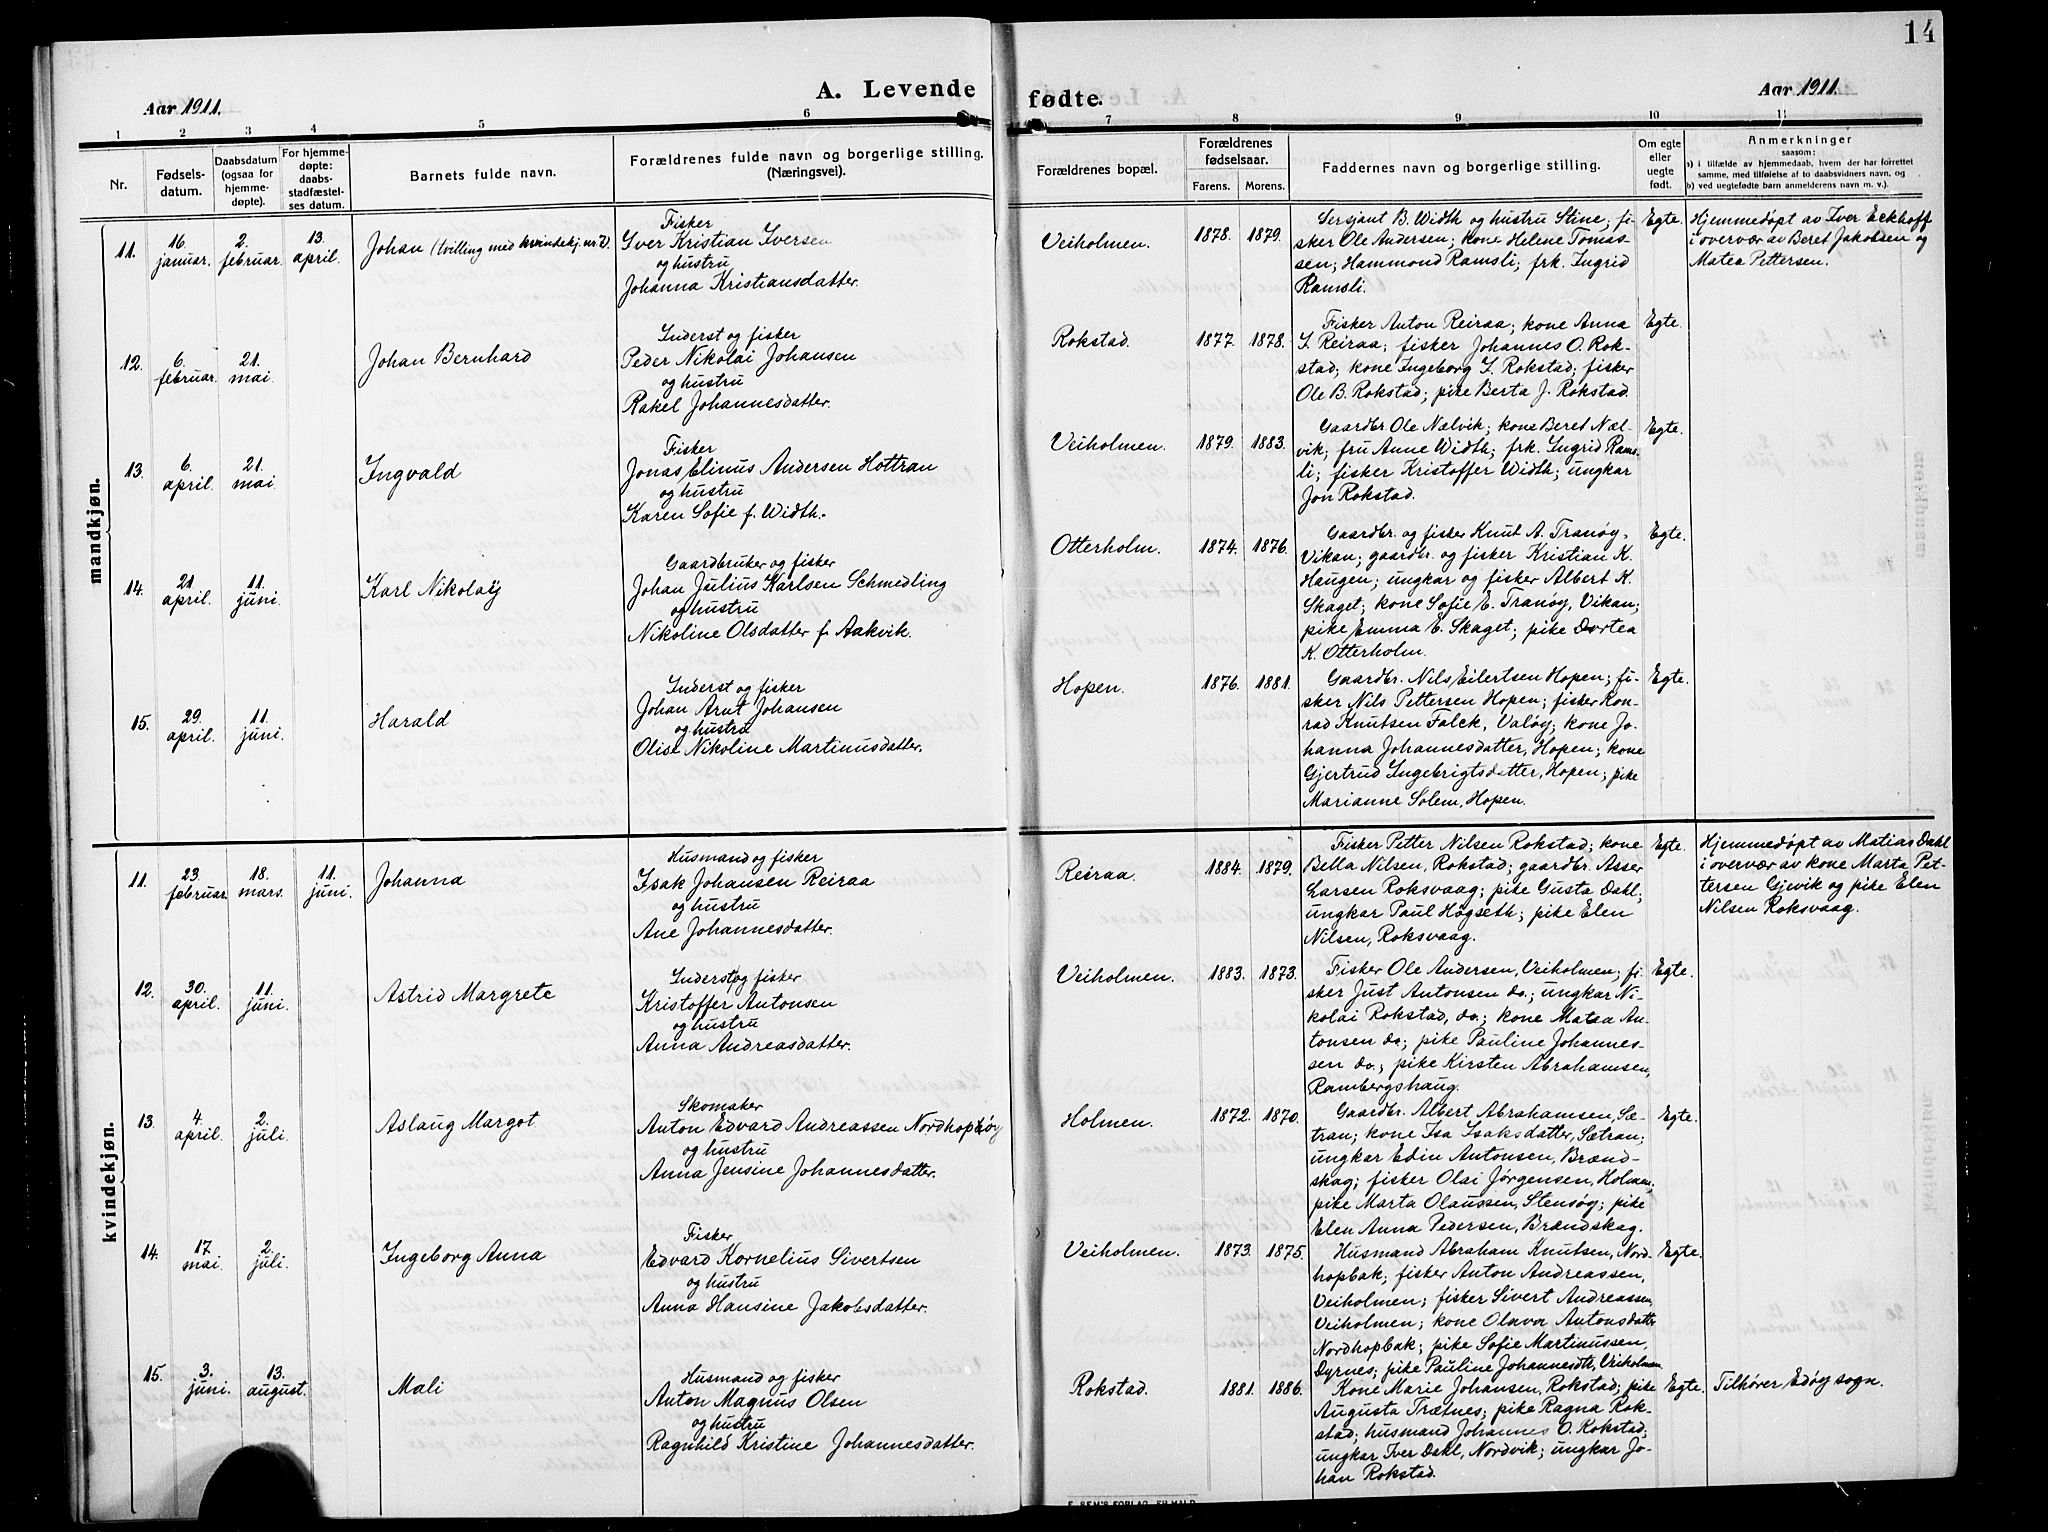 14
A. Levende fødte.
Aar 1911.
Aar 1911.
1 2 3 4 5 6 7 8 9 10 11
Nr.
Fødsels-
datum.
Daabsdatum
(ogsaa for
hjemme-
døpte).
For hjemme-
døpte:
daabs-
stadfæstel-
ses datum.
Barnets fulde navn.
Forældrenes fulde navn og borgerlige stilling.
(Næringsvei).
Forældrenes bopæl.
Forældrenes
fødselsaar.
Farens. Morens.
Faddernes navn og borgerlige stilling.
Om egte
eller
uegte
født.
Anmerkninger
saasom:
a) i tilfælde av hjemmedaab, hvem der har forrettet
samme, med tilføielse af to daabsvidners navn, og
b) ved uegtefødte barn anmelderens navn m. v.).
mandkjøn.
11.
16.
januar.
2.
februar.
13.
april.
Johan (tvilling med kvindekj. nr. 7).
Fisker
Yver Kristian Iversen
og hustru
Johanna Kristiansdatter.
Veiholmen.
1878. 1879.
Sersjant B. Width og hustru Stine; fi-
sker Ole Andersen; kone Helene Tomas-
sen; Hammond Ramsli; frk. Ingrid
Ramsli.
Egte.
Hjemmedøpt av Iver Eckhoff
i overvær av Beret Jakobsen og
Matea Pettersen.
12.
6.
februar.
21.
mai.
Johan Bernhard
Inderst og fisker
Peder Nikolai Johansen
og hustru
Rakel Johannesdatter.
Rokstad.
1877. 1878.
Fisker Anton Reiraa; kone Anna
I. Reiraa; fisker Johannes O. Rok-
stad; kone Ingeborg I. Rokstad; fisker
Ole B. Rokstad; pike Berta J. Rokstad.
Egte.
13.
6.
april.
21.
mai.
Ingvald
Fisker
Jonas Elinus Andersen Hottran
og hustru
Karen Sofie f. Width.
Veiholmen.
1879. 1883.
Gaardbr. Ole Nælvik; kone Beret Næl-
vik; fru Anne Width; frk. Ingrid Rams-
li; fisker Kristoffer Width; ungkar
Jon Rokstad.
Egte.
14.
21.
april.
11.
juni.
Karl Nikolaÿ
Gaardbruker og fisker
Johan Julius Karlsen Schmedling
og hustru
Nikoline Olsdatter f. Aakvik.
Otterholm.
1874. 1876.
Gaardbr. og fisker Knut A. Tranøy,
Vikan; gaardbr. og fisker Kristian K.
Haugen; ungkar og fisker Albert K.
Skaget; kone Sofie E. Tranøy, Vikan;
pike Emma E. Skaget; pike Dortea
K. Otterholm.
Egte.
15.
29.
april.
11.
juni.
Harald
Inderst og fisker
Johan Arnt Johansen
og hustru
Olise Nikoline Martinusdatter.
Hopen.
1876. 1881.
Gaardbr. Nils Eilertsen Hopen; fi-
sker Nils Pettersen Hopen; fisker Kon-
rad Knutsen Falck, Valøy; kone Jo-
hanna Johannesdatter, Hopen; kone
Gjertrud Ingebrigtsdatter, Hopen; pike
Marianne Solem, Hopen.
Egte.
kvindekjøn.
11.
23.
februar.
18.
mars.
11.
juni.
Johanna
Husmand og fisker
Isak Johansen Reiraa
og hustru
Ane Johannesdatter.
Reiraa.
1884. 1879.
Fisker Petter Nilsen Rokstad; kone
Bella Nilsen, Rokstad; gaardbr. Asser
Larsen Roksvaag; pike Gusta Dahl;
ungkar Paul Høgseth; pike Elen
Nilsen, Roksvaag.
Egte.
Hjemmedøpt av Matias Dahl
i overvær av kone Marta Pet-
tersen Gjevik og pike Elen
Nilsen Roksvaag.
12.
30.
april.
11.
juni.
Astrid Margrete
Inderst og fisker
Kristoffer Antonsen
og hustru
Anna Andreasdatter.
Veiholmen.
1883. 1873.
Fisker Ole Andersen, Veiholmen; fi-
sker Just Antonsen do.; ungkar Ni-
kolai Rokstad, do.; kone Matea An-
tonsen do; pike Pauline Johannes-
sen do.; pike Kirsten Abrahamsen,
Rambergshaug.
Egte.
13.
4.
april.
2.
juli.
Aslaug Margot
Skomaker
Anton Edvard Andreassen Nordhopøy
og hustru
Anna Jensine Johannesdatter.
Holmen.
1872. 1870.
Gaardbr. Albert Abrahamsen, Sæ-
tran; kone Isa Isaksdatter, Sætran;
ungkar Edin Antonsen, Brænd-
skag; fisker Olai Jørgensen, Holmen;
pike Marta Olaussen, Stensøy; pike
Elen Anna Pedersen, Brændskag.
Egte.
14.
17.
mai.
2.
juli.
Ingeborg Anna
Fisker
Edvard Kornelius Sivertsen
og hustru
Anna Hansine Jakobsdatter.
Veiholmen.
1873. 1875.
Husmand Abraham Knutsen, Nord-
hopbak; fisker Anton Andreassen,
Veiholmen; fisker Sivert Andreassen,
Veiholmen; kone Olava Antonsdatter
Nordhopbak; pike Sofie Martinussen,
Dyrnes; pike Pauline Johannesdtr., Veiholmen.
Egte.
15.
3.
juni.
13.
august.
Mali
Husmand og fisker
Anton Magnus Olsen
og hustru
Ragnhild Kristine Johannesdatter.
Rokstad.
1881. 1886.
Kone Marie Johansen, Rokstad; pike
Augusta Trætnes; pike Ragna Rok-
stad; husmand Johannes O. Rokstad;
ungkar Iver Dahl, Nordvik; ungkar Jo-
han Rokstad.
Egte.
Tilhører Edøy sogn.